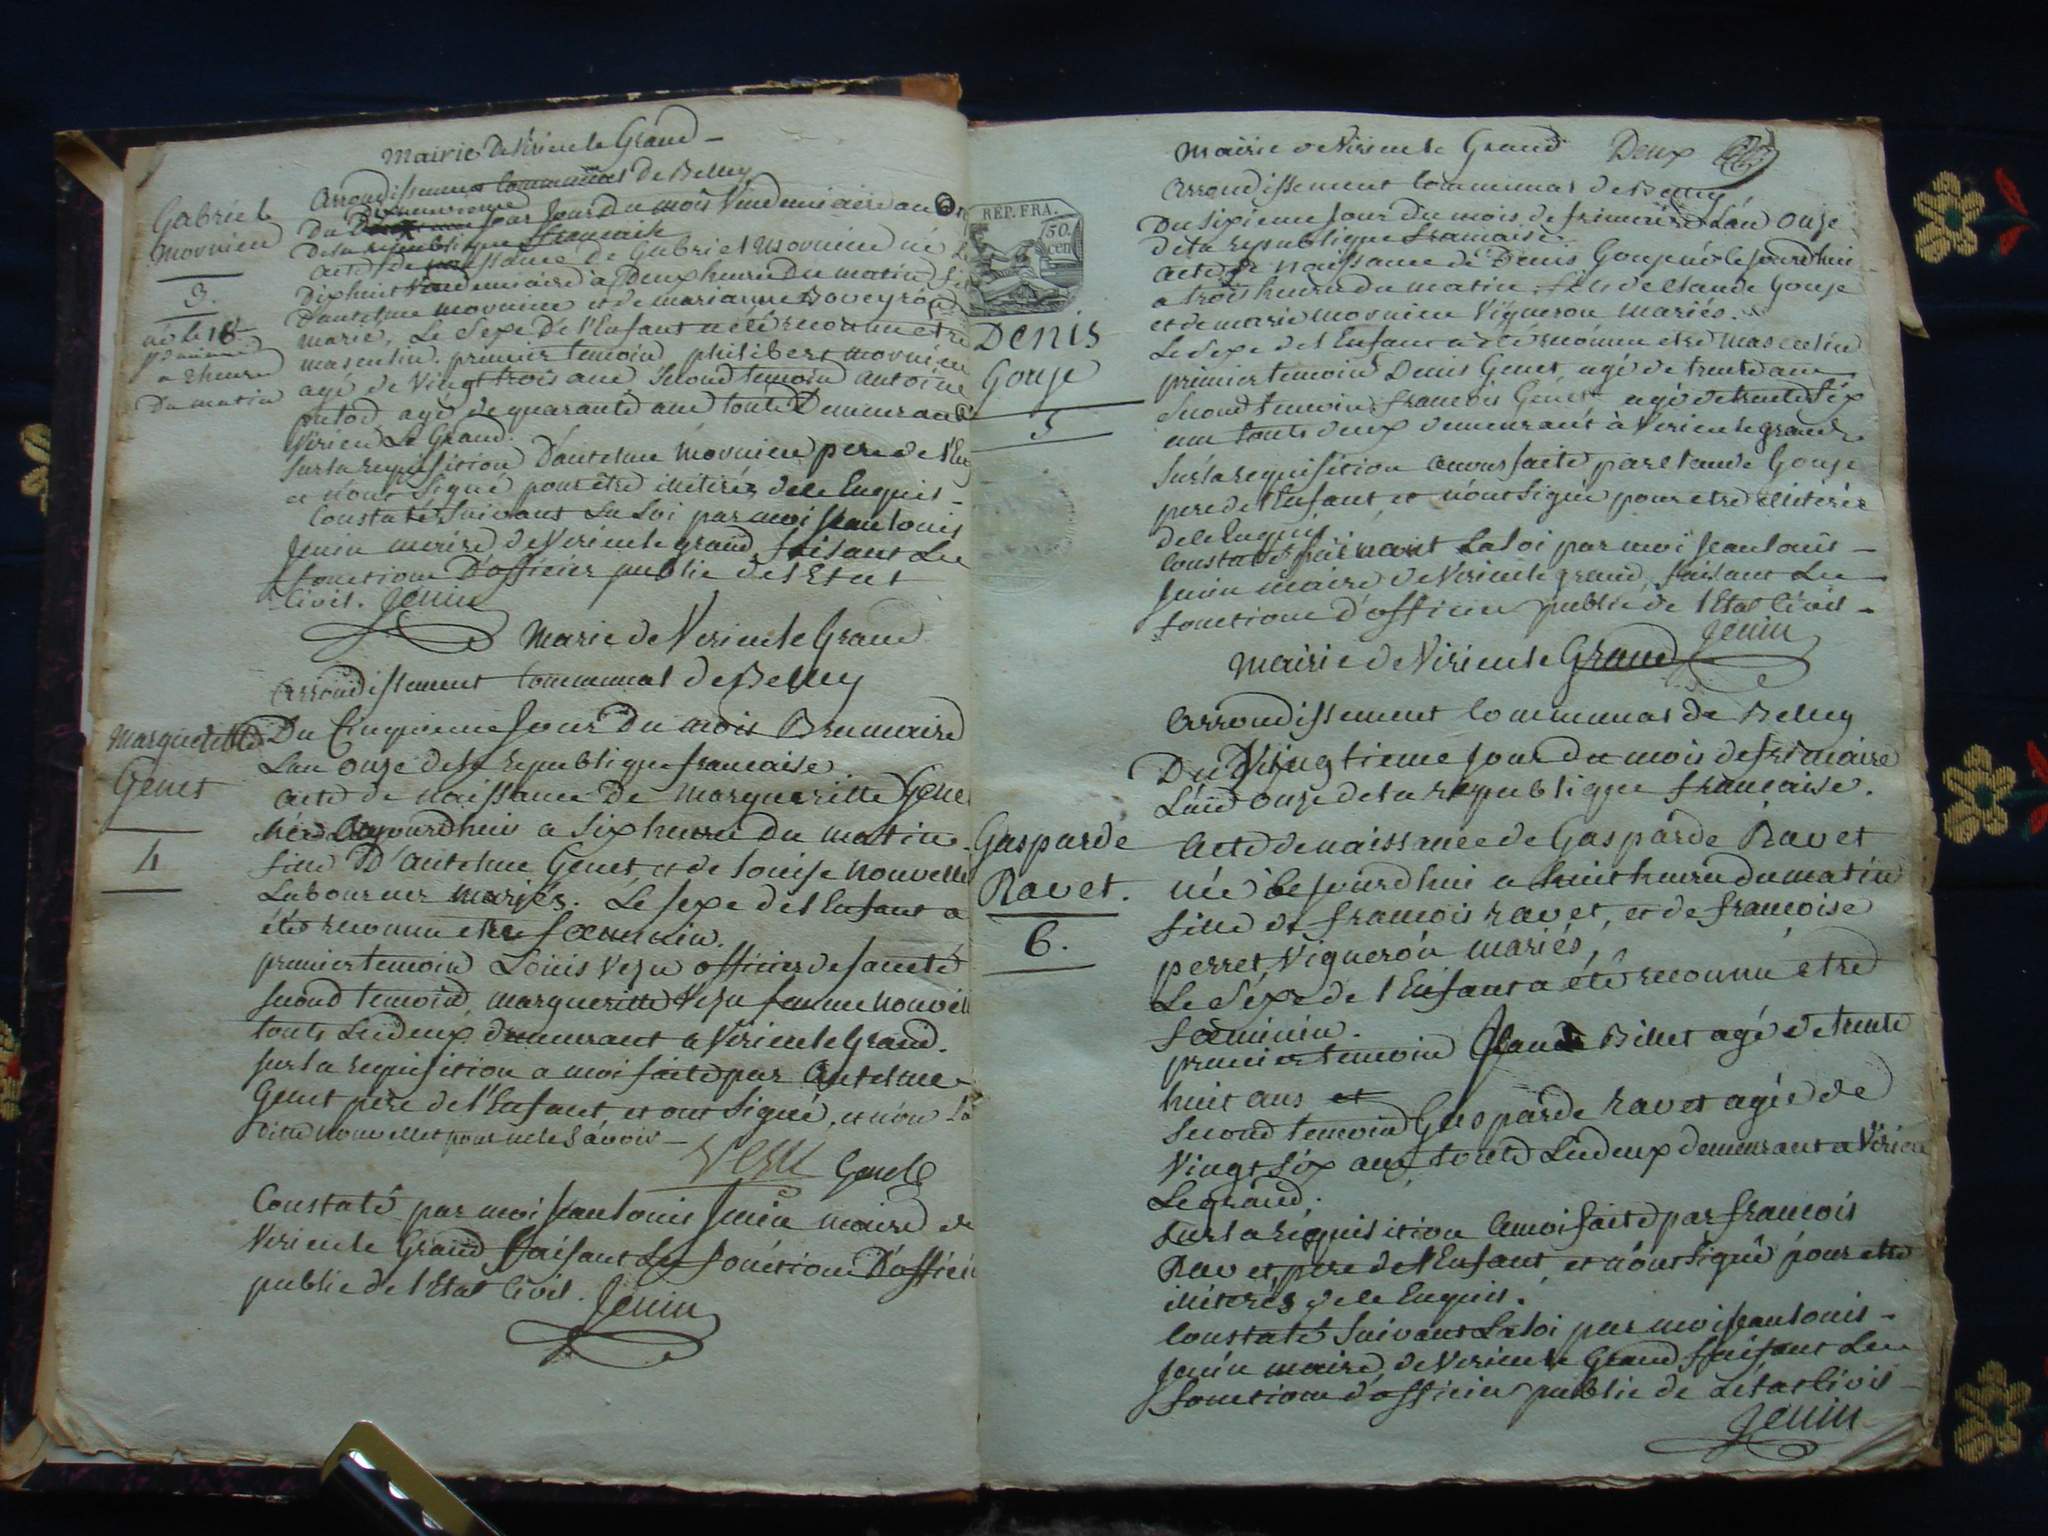 Mairie de Virieu le Grand
Arrondissement Communal de Belley
Gabriel
Mornieu
3.
né le 18
a 2 heures
du matin
dixneuvieme
Du jour du mois Vendemiaire an
De la republique francaise
acte de naissance de Gabriel Mornieu né le
Dixhuit Vendemiaire à Deux heures Du matin
D'antelme mornieu et de marianne Boveyron
marié, Le Sexe De l'Enfant a été reconnu etre
masculin. premier temoin philibert mornieu
agé de Vingt trois ans Second temoin antoine
agé de quarante ans touts Demeurant
Virieu Le Grand.
Sur la requisition D'antelme Mornieu pere de l'En
et n'ont Signé pour être illiterés de ce Enquis
Constaté Suivant La Loi par moi Jean Louis
Jenin maire de Virieu le grand, faisant Les
fonctions D'officier public de l'Etat
Civil. Jenin
Marie de Virieu le Grand
Arrondissement Communal de Belley
Margueritte
Genet
4
Du Cinquieme Jour Du mois Brumaire
L'an Onze de la republique francaise
acte de naissance De Margueritte Gene
Née Aujourdhui a Six heures du matin
fille D'Antelme Genet, et de Louise Nouvelle
Laboureur Mariés. Le sexe de l'Enfant a
été reconnu etre foeminin.
premier temoin Louis Vezu officier de santé
second temoin, margueritte Vezu femme nouvell
touts Les deux demeurant a Virieu le Grand.
sur la requisition a moi faite par Antelme
Genet père de l'Enfant et ont Signé, et non La
ditte nouvellet pour ne le Savoir
Vezu Genet
Constaté par moi Jean Louis Jenin maire de
Virieu le Grand faisant Les fonctions D'officie
public de l'Etat Civil. Jenin
Mairie de Virieu le Grand Deux
Arrondissement Communal de Belley
REP. FRA.
50.
cen
Denis
Gouje
5
Du sixieme Jour du mois de frimaire L'an onze
de la republique francaise.
Acte de Naissance de Denis Gouje né le jourdhui
a trois heures du matin, fils de Claude Gouje
et de marie mornieu Vigneron mariés.
Le Sexe de l'Enfant a été reconnu etre masculin
premier temoin Denis Genet, agé de trente ans
Second temoin francois Genet agé de trente Six
ans touts deux demeurant à Virieu le grand
Sur la requisition a nous faite par Claude Gouje
pere de l'Enfant, et n'ont Signé pour etre illiterés
de ce Enquis
Constaté Suivant La Loi par moi Jean Louis
Jenin maire de Virieu le grand, faisant Les
fonctions d'officier public de l'Etat Civil
Jenin
Mairie de Virieu le Grand
Arrondissement Communal de Belley
Du Vingtieme Jour du mois de frimaire
L'an Onze de la republique francaise.
Gasparde
Ravet.
6.
Acte de naissance de Gasparde Ravet
née le jourd'hui a huit heures du matin
fille de francois ravet, et de francoise
perret, Vigneron mariés,
Le Séxe de l'Enfant a été reconnu être
foeminin.
premier temoin Claude Billet agé de trente
huit ans et
Second temoin Gasparde ravet agée de
Vingt Six ans, touts Les deux demeurant a Virieu
Le grand.
Sur la réquisition a moi faite par francois
Ravet, pere de l'Enfant, et n'ont Signé pour etre
illiterés, de ce Enquis.
Constaté Suivant La Loi par moi Jean Louis
Jenin maire, de Virieu le Grand faisant Les
fonctions d'officier public de L'état Civil
Jenin